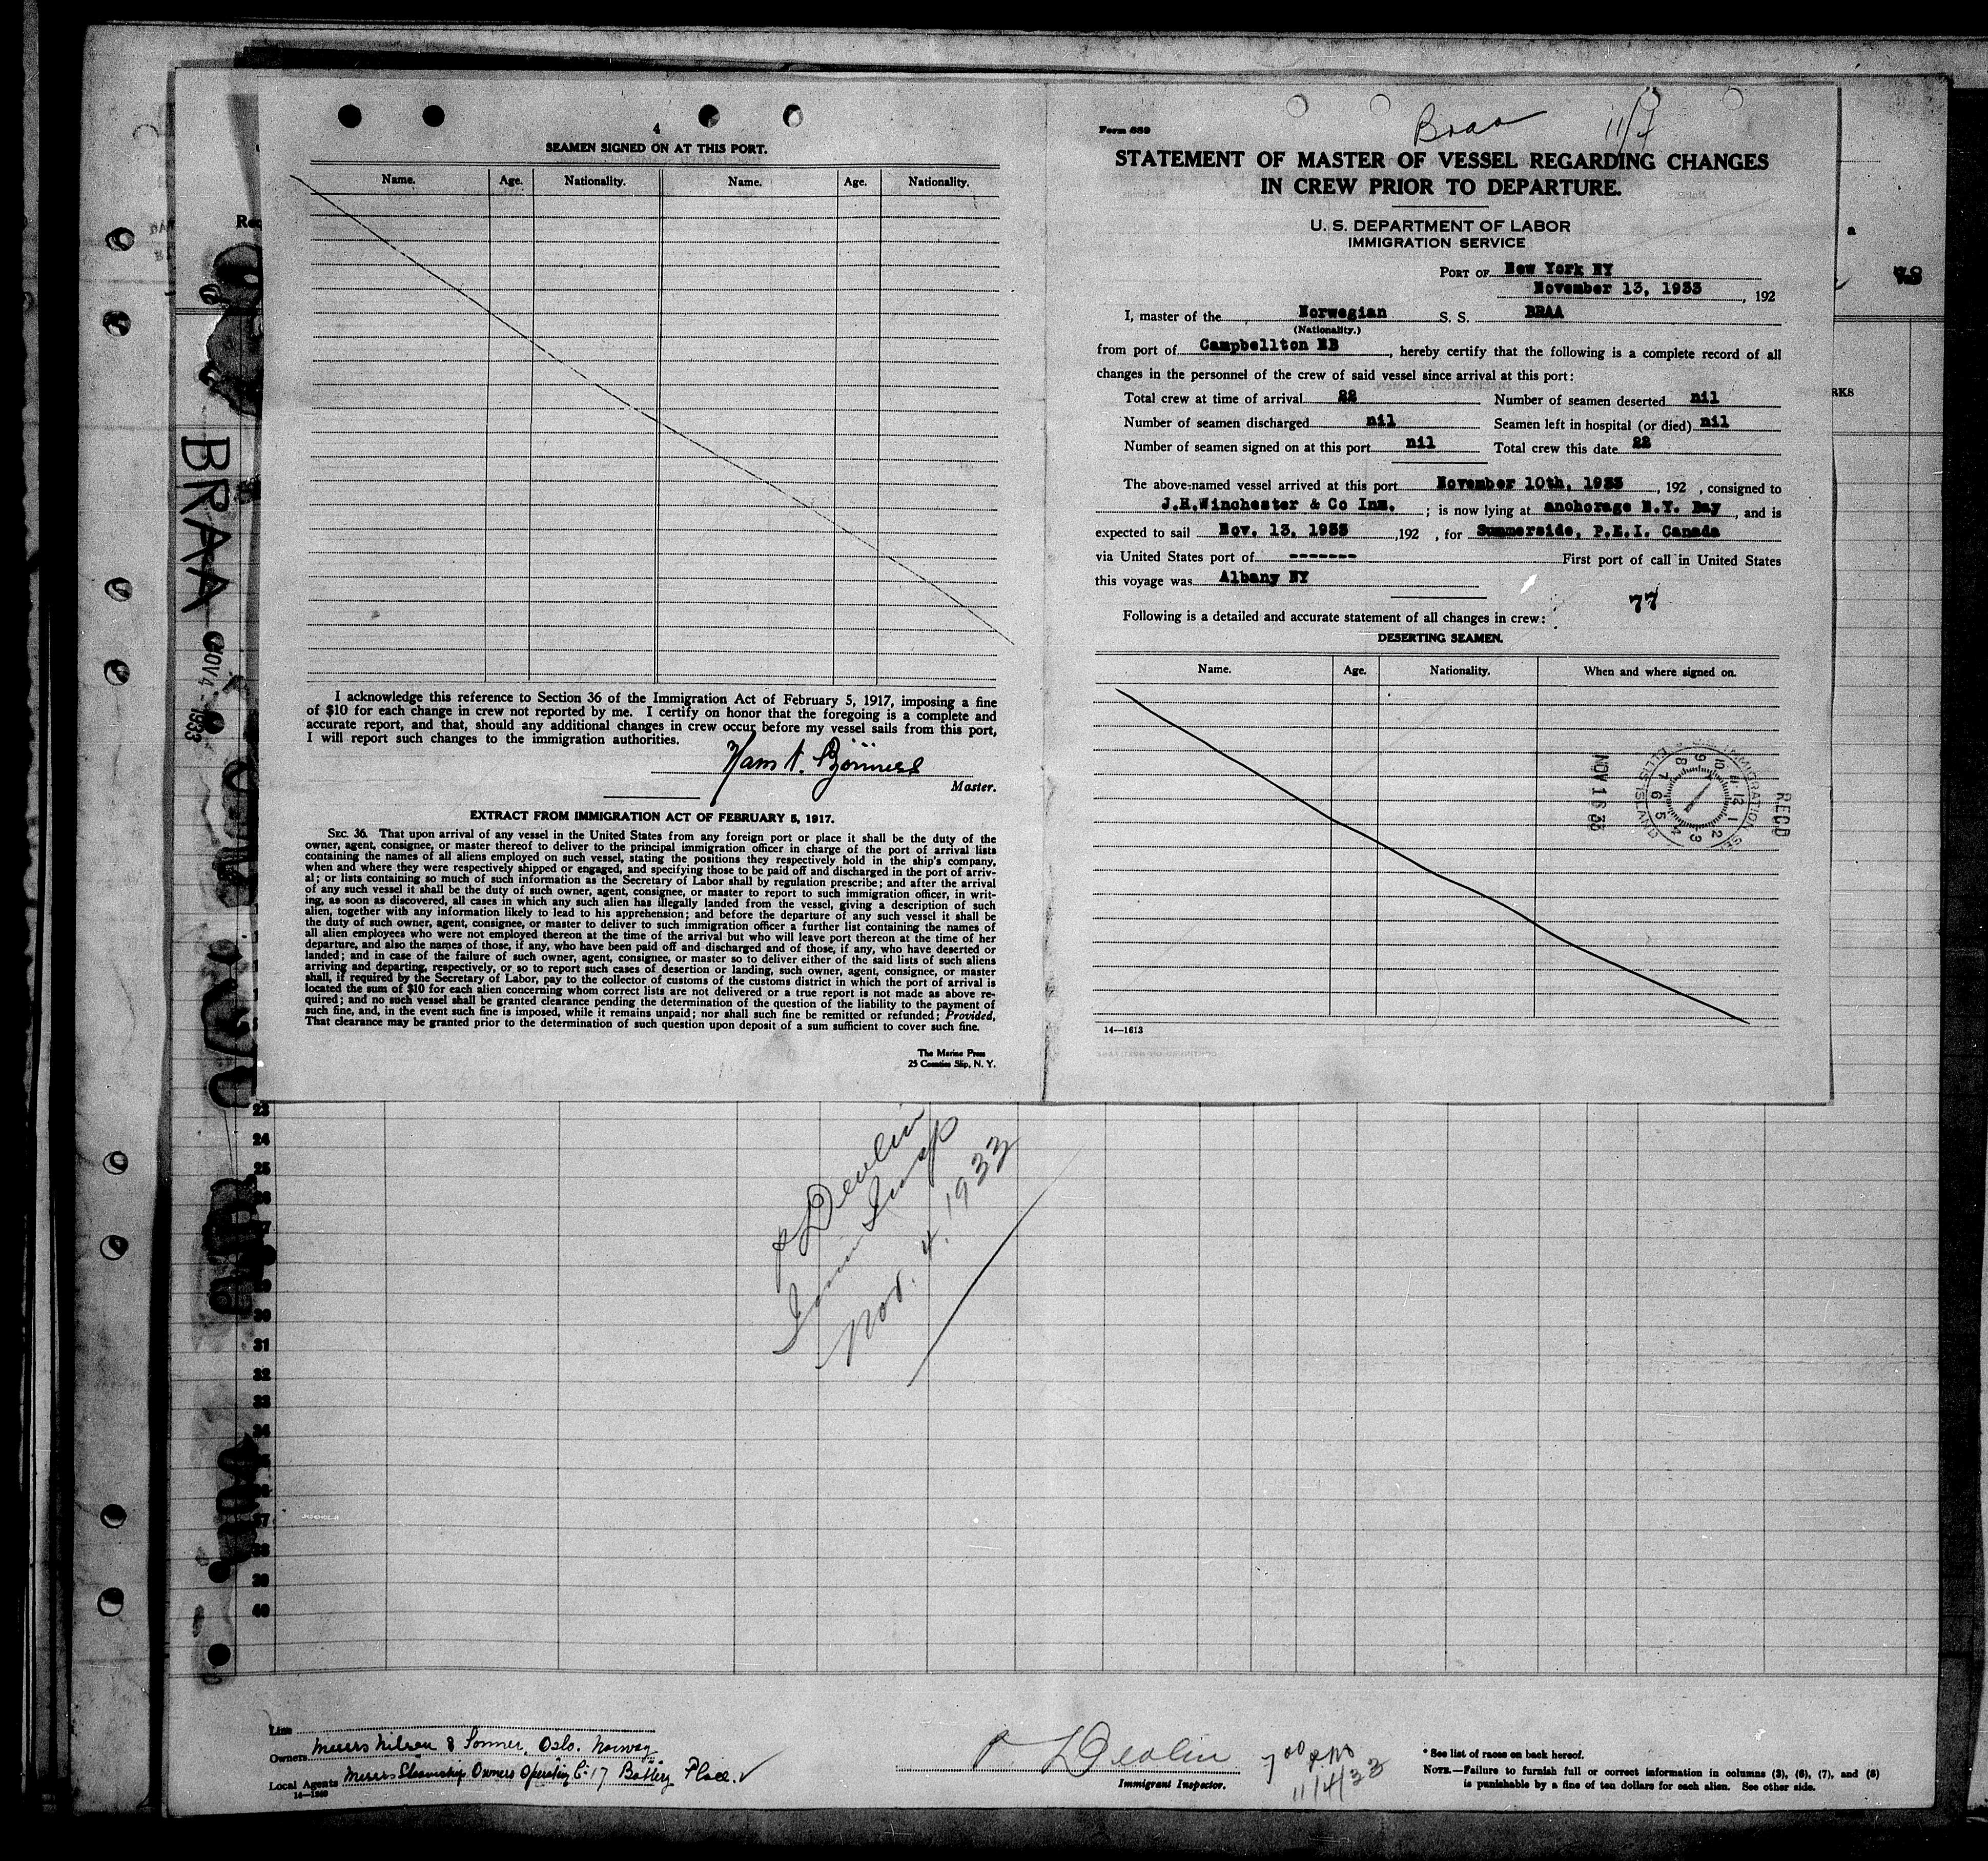 4
SEAMEN SIGNED ON AT THIS PORT.
Name. Age. Nationality. Name. Age. Nationality.
I acknowledge this reference to Section 36 of the Immigration Act of February 5, 1917, imposing a fine
of $10 for each change in crew not reported by me. I certify on honor that the foregoing is a complete and
accurate report, and that, should any additional changes in crew occur before my vessel sails from this port,
I will report such changes to the immigration authorities.
Master.
EXTRACT FROM IMMIGRATION ACT OF FEBRUARY 5, 1917.
SEC. 36. That upon arrival of any vessel in the United States from any foreign port or place it shall be the duty of the
owner, agent, consignee, or master thereof to deliver to the principal immigration officer in charge of the port of arrival lists
containing the names of all aliens employed on such vessel, stating the positions they respectively hold in the ship's company,
when and where they were respectively shipped or engaged, and specifying those to be paid off and discharged in the port of arriv-
al; or lists containing so much of such information as the Secretary of Labor shall by regulation prescribe; and after the arrival
of any such vessel it shall be the duty of such owner, agent, consignee, or master to report to such immigration officer, in writ-
ing, as soon as discovered, all cases in which any such alien has illegally landed from the vessel, giving a description of such
alien, together with any information likely to lead to his apprehension; and before the departure of any such vessel it shall be
the duty of such owner, agent, consignee, or master to deliver to such immigration officer a further list containing the names of
all alien employees who were not employed thereon at the time of the arrival but who will leave port thereon at the time of her
departure, and also the names of those, if any, who have been paid off and discharged and of those, if any, who have deserted or
landed; and in case of the failure of such owner, agent, consignee, or master so to deliver either of the said lists of such aliens
arriving and departing, respectively, or so to report such cases of desertion or landing, such owner, agent, consignee, or master
shall, if required by the Secretary of Labor, pay to the collector of customs of the customs district in which the port of arrival is
located the sum of $10 for each alien concerning whom correct lists are not delivered or a true report is not made as above re-
quired; and no such vessel shall be granted clearance pending the determination of the question of the liability to the payment of
such fine, and, in the event such fine is imposed, while it remains unpaid; nor shall such fine be remitted or refunded; Provided,
That clearance may be granted prior to the determination of such question upon deposit of a sum sufficient to cover such fine.
The Marine Press
25 Coenties Slip, N. Y.
Form 689
Braa 11/7
STATEMENT OF MASTER OF VESSEL REGARDING CHANGES
IN CREW PRIOR TO DEPARTURE.
U. S. DEPARTMENT OF LABOR
IMMIGRATION SERVICE
PORT OF New York NY
November 13, 1933, 192
I, master of the Norwegian S. S. BRAA
(Nationality.)
from port of Campbellton NB, hereby certify that the following is a complete record of all
changes in the personnel of the crew of said vessel since arrival at this port:
Total crew at time of arrival 22 Number of seamen deserted nil
Number of seamen discharged nil Seamen left in hospital (or died) nil
Number of seamen signed on at this port nil Total crew this date 22
The above-named vessel arrived at this port November 10th, 1933, 192 , consigned to
J.H.Winchester & Co Inc. ; is now lying at anchorage N.Y. Bay, and is
expected to sail Nov. 13, 1933, 192 , for Summerside, P.E.I. Canada
via United States port of ------- First port of call in United States
this voyage was Albany NY
77
Following is a detailed and accurate statement of all changes in crew:
DESERTING SEAMEN.
Name. Age. Nationality. When and where signed on.
NOV 16 33
RECD
ELLIS ISLAND
14—1613
78
RKS
BRAA
NOV 4 1933
23
24
25
26
27
29
30
31
32
33
34
37
39
40
P Devlin
Immi Insp
Nov. 4. 1933
Line
Owners Messrs Nilsen & Sonner, Oslo. Norway
Local Agents Messrs Steamship Owners Operating Co. 17 Battery Place. ✓
P. Devlin
Immigrant Inspector.
7 00 pm
11/4/33
* See list of races on back hereof.
NOTE.—Failure to furnish full or correct information in columns (3), (6), (7), and (8)
is punishable by a fine of ten dollars for each alien. See other side.